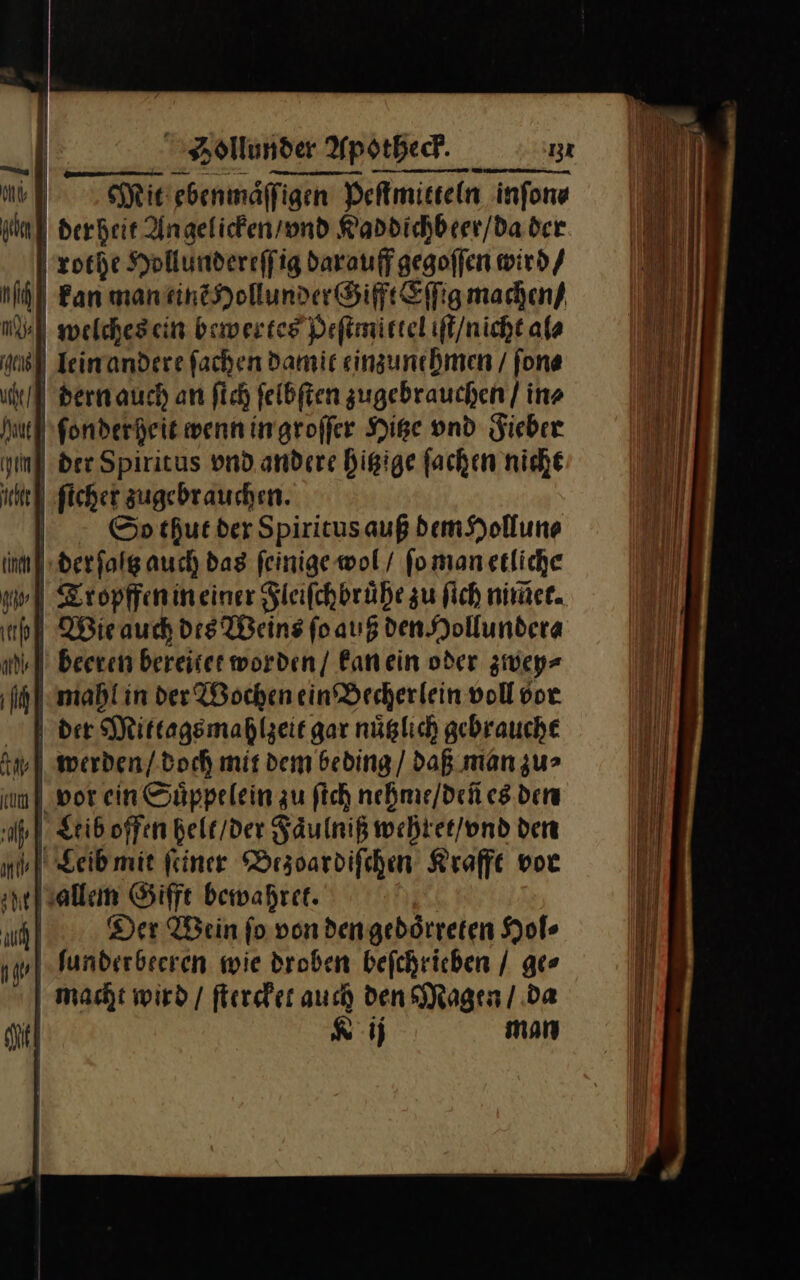 Hollunder Apotheck. 131
Mit ebenmäſſigen Peſtmitteln inſon⸗
derheit Angelicken/vnd Kaddichbeer/da der
rothe Hollundereſſig darauff gegoſſen wird/
kan man einẽ Hollunder Gifft Eſſig machen/
welches ein bewertes Peſtmittel iſt/nicht al⸗
lein andere ſachen damit einzunehmen / ſon⸗
dern auch an ſich ſelbſten zugebrauchen / in⸗
ſonderheit wenn in groſſer Hitze vnd Fieber
der Spiritus vnd andere hitzige ſachen nicht
ſicher zugebrauchen.
So thut der Spiritus auß dem Hollun⸗
derſaltz auch das ſeinige wol / ſo man etliche
Tropffen in einer Fleiſchbrühe zu ſich nim̃et.
Wie auch des Weins ſo auß den Hollundera
beeren bereitet worden / kan ein oder zwey⸗
mahl in der Wochen ein Becherlein voll vor
der Mittagsmahlzeit gar nützlich gebraucht
werden / doch mit dem beding / daß man zu⸗
vor ein Süppelein zu ſich nehme/deñ es den
Leib offen helt/der Fäulniß wehret/vnd den
Leib mit ſeiner Bezoardiſchen Krafft vor
allem Gifft bewahret.
Der Wein ſo von den gedörreten Hol⸗
lunderbeeren wie droben beſchrieben / ge⸗
macht wird / ſtercket auch den Magen / da
K ij man